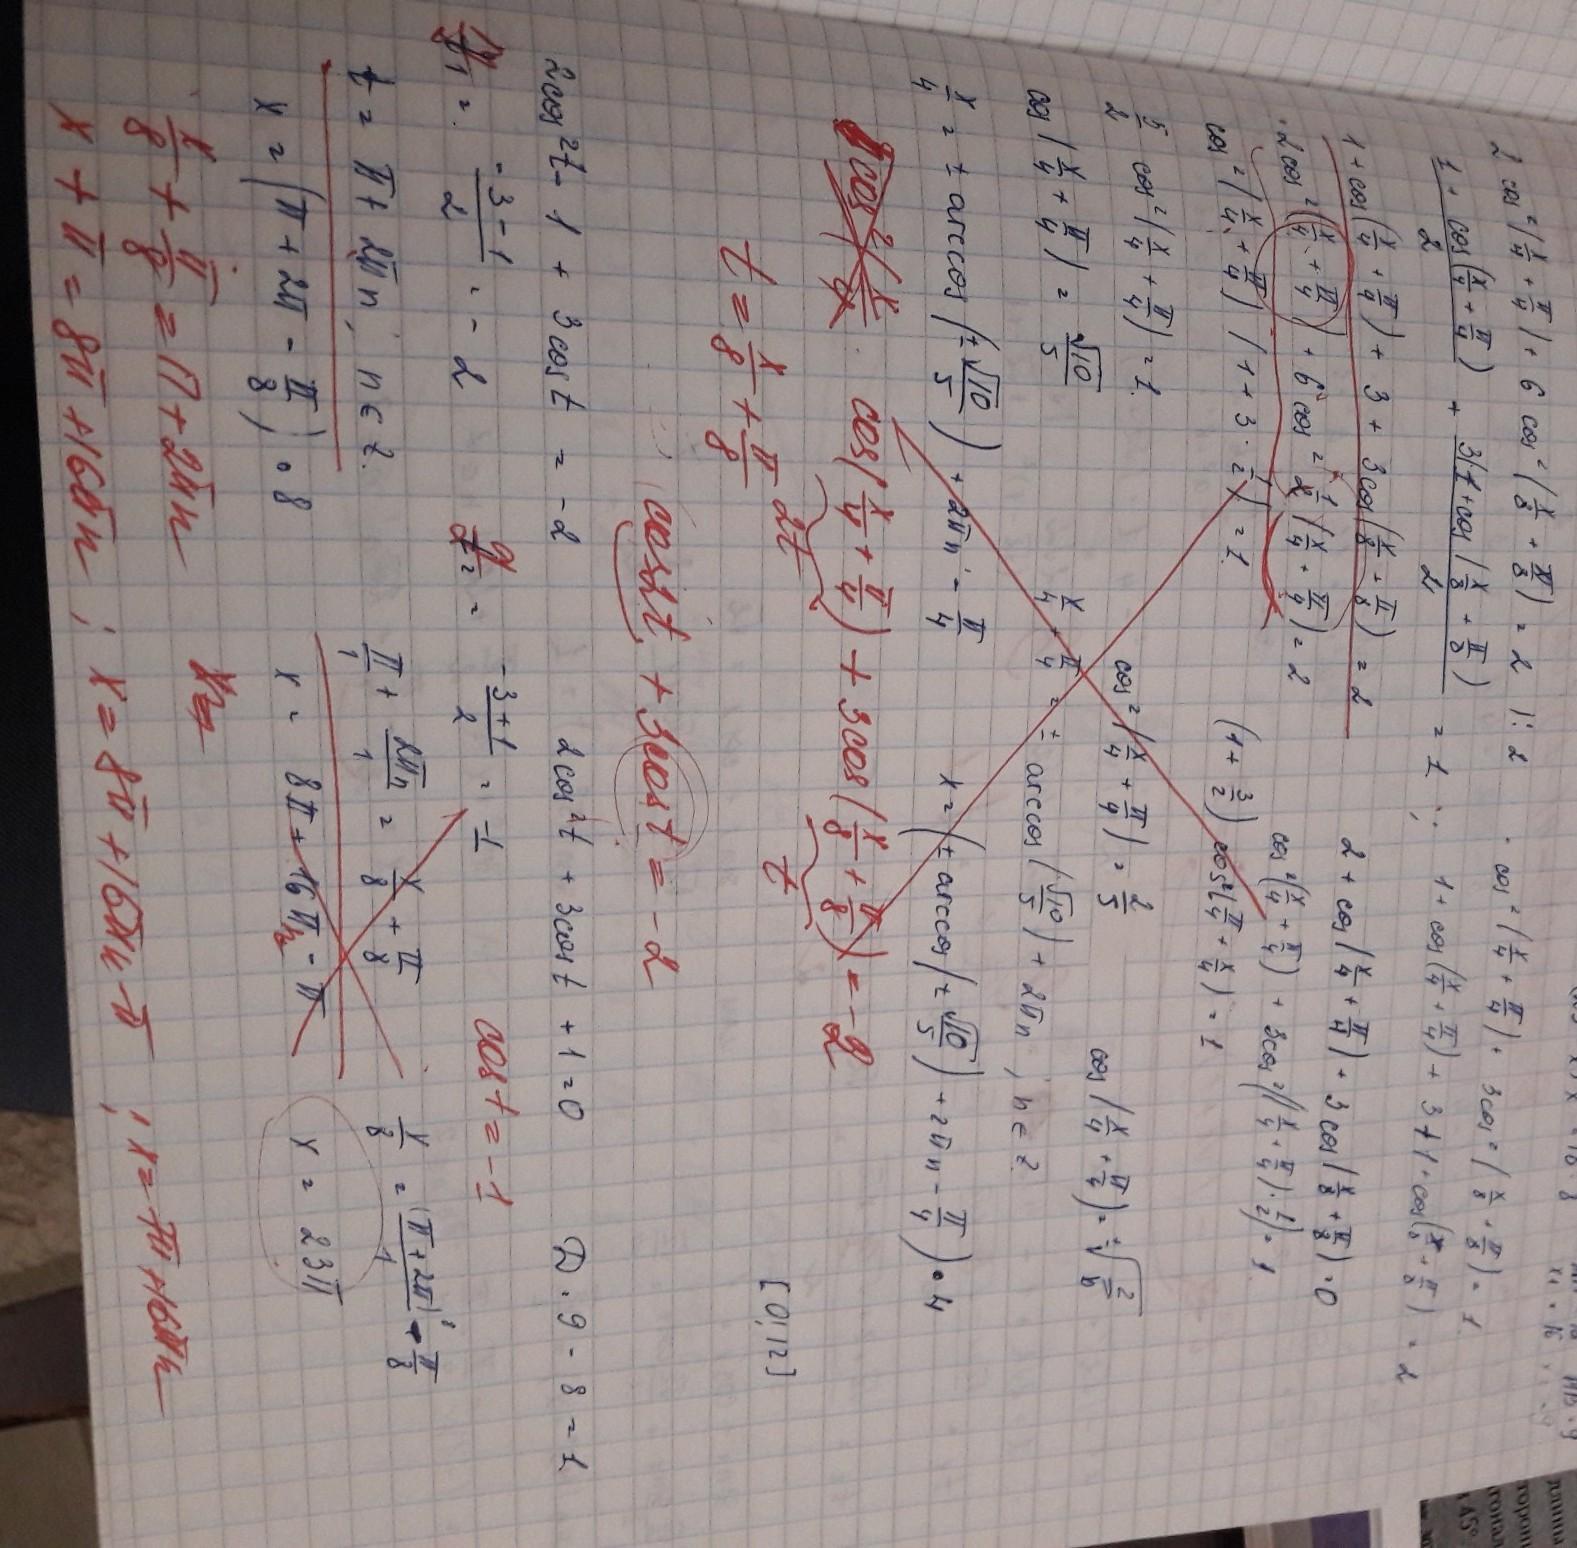 2 cos²(x/4 + π/4) + 6 cos²(x/8 + π/8) = 2 |: 2
cos²(x/4 + π/4) + 3cos²(x/8 + π/8) = 1
1 + cos(x/4 + π/4) / 2 + 3(1 + cos(x/8 + π/8) / 2 = 1
1 + cos(x/4 + π/4) + 3 + 1 · cos(x/8 + π/8) = 2
1 + cos(x/4 + π/4) + 3 + 3cos(x/8 + π/8) = 2
2 + cos(x/4 + π/4) + 3 cos(x/8 + π/8) = 0
2 cos²(x/4 + π/4) + 6 cos² 1/2 (x/4 + π/4) = 2
cos²(x/4 + π/4) + 3cos²((x/4 + π/4) · 1/2) = 1
cos²(x/4 + π/4) (1 + 3 · 1/2) = 1
(1 + 3/2) cos²(π/4 + x/4) = 1
5/2 cos²(x/4 + π/4) = 1
cos²(x/4 + π/4) = 2/5
cos(x/4 + π/4) = √2/5
cos(x/4 + π/4) = √10/5
x/4 + π/4 = ± arccos(√10/5) + 2πn, n ∈ Z
x/4 = ± arccos(± √10/5) + 2πn - π/4
x = (± arccos(± √10/5) + 2πn - π/4) · 4
cos(x/4 + π/4) + 3cos(x/8 + π/8) = -2
2t
t
[0; 12]
t = x/8 + π/8
cos2t + 3cost = -2
2cos²t - 1 + 3cos t = -2
2cos²t + 3cost + 1 = 0
D = 9 - 8 = 1
y1 = -3 - 1 / 2 = -2
y2 = -3 + 1 / 2 = -1
cos t = -1
t = π + 2πn, n ∈ Z.
π/1 + 2πn/1 = x/8 + π/8
x/8 = (π + 2π)/1 - π/8
x = (π + 2π - π/8) · 8
x = 8π + 16πn - π
x = 23π
x/8 + π/8 = π + 2πn
x =
x + π = 8π + 16πn ; x = 8π + 16πn - π ; x = 7π + 16πn
длины
45°